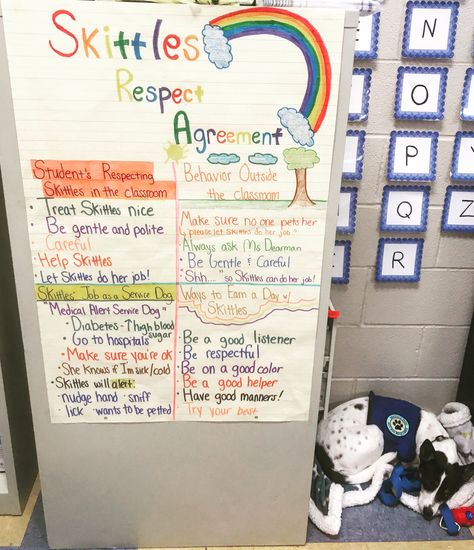 Skittles
Respect
Agreement
Student's Respecting
Skittles in the classroom
• Treat Skittles nice
• Be gentle and polite
Careful
• Help Skittles
• Let Skittles do her job!
Behavior Outside
the classroom
Make sure no one pets her
"please let Skittles do her job"
Always ask Ms Dearman
• Be Gentle & Careful
"Shh...." so Skittles can do her job!
Skittles' Job as a Service Dog
"Medical Alert Service Dog"
• Diabetes - ↑high blood
sugar
• Go to hospitals
• Make sure you're ok
• She knows if I'm sick/cold
• Skittles will alert:
nudge hand · sniff
lick · wants to be petted
Ways to Earn a Day w/
Skittles
• Be a good listener
• Be respectful
• Be on a good color
• Be a good helper
• Have good manners!
Try your best
N
O
P
Q
R